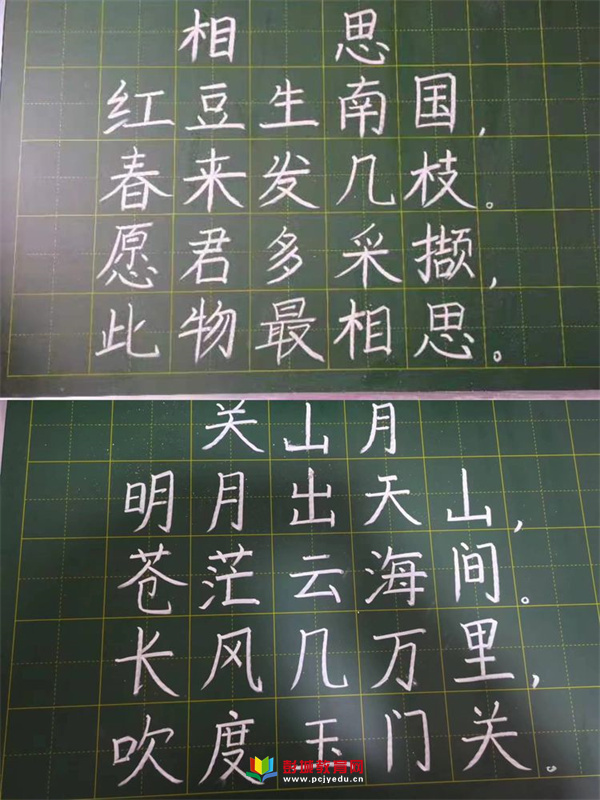 相思
红豆生南国，
春来发几枝。
愿君多采撷，
此物最相思。
关山月
明月出天山，
苍茫云海间。
长风几万里，
吹度玉门关。
彭城教育网
www.pcjyedu.cn